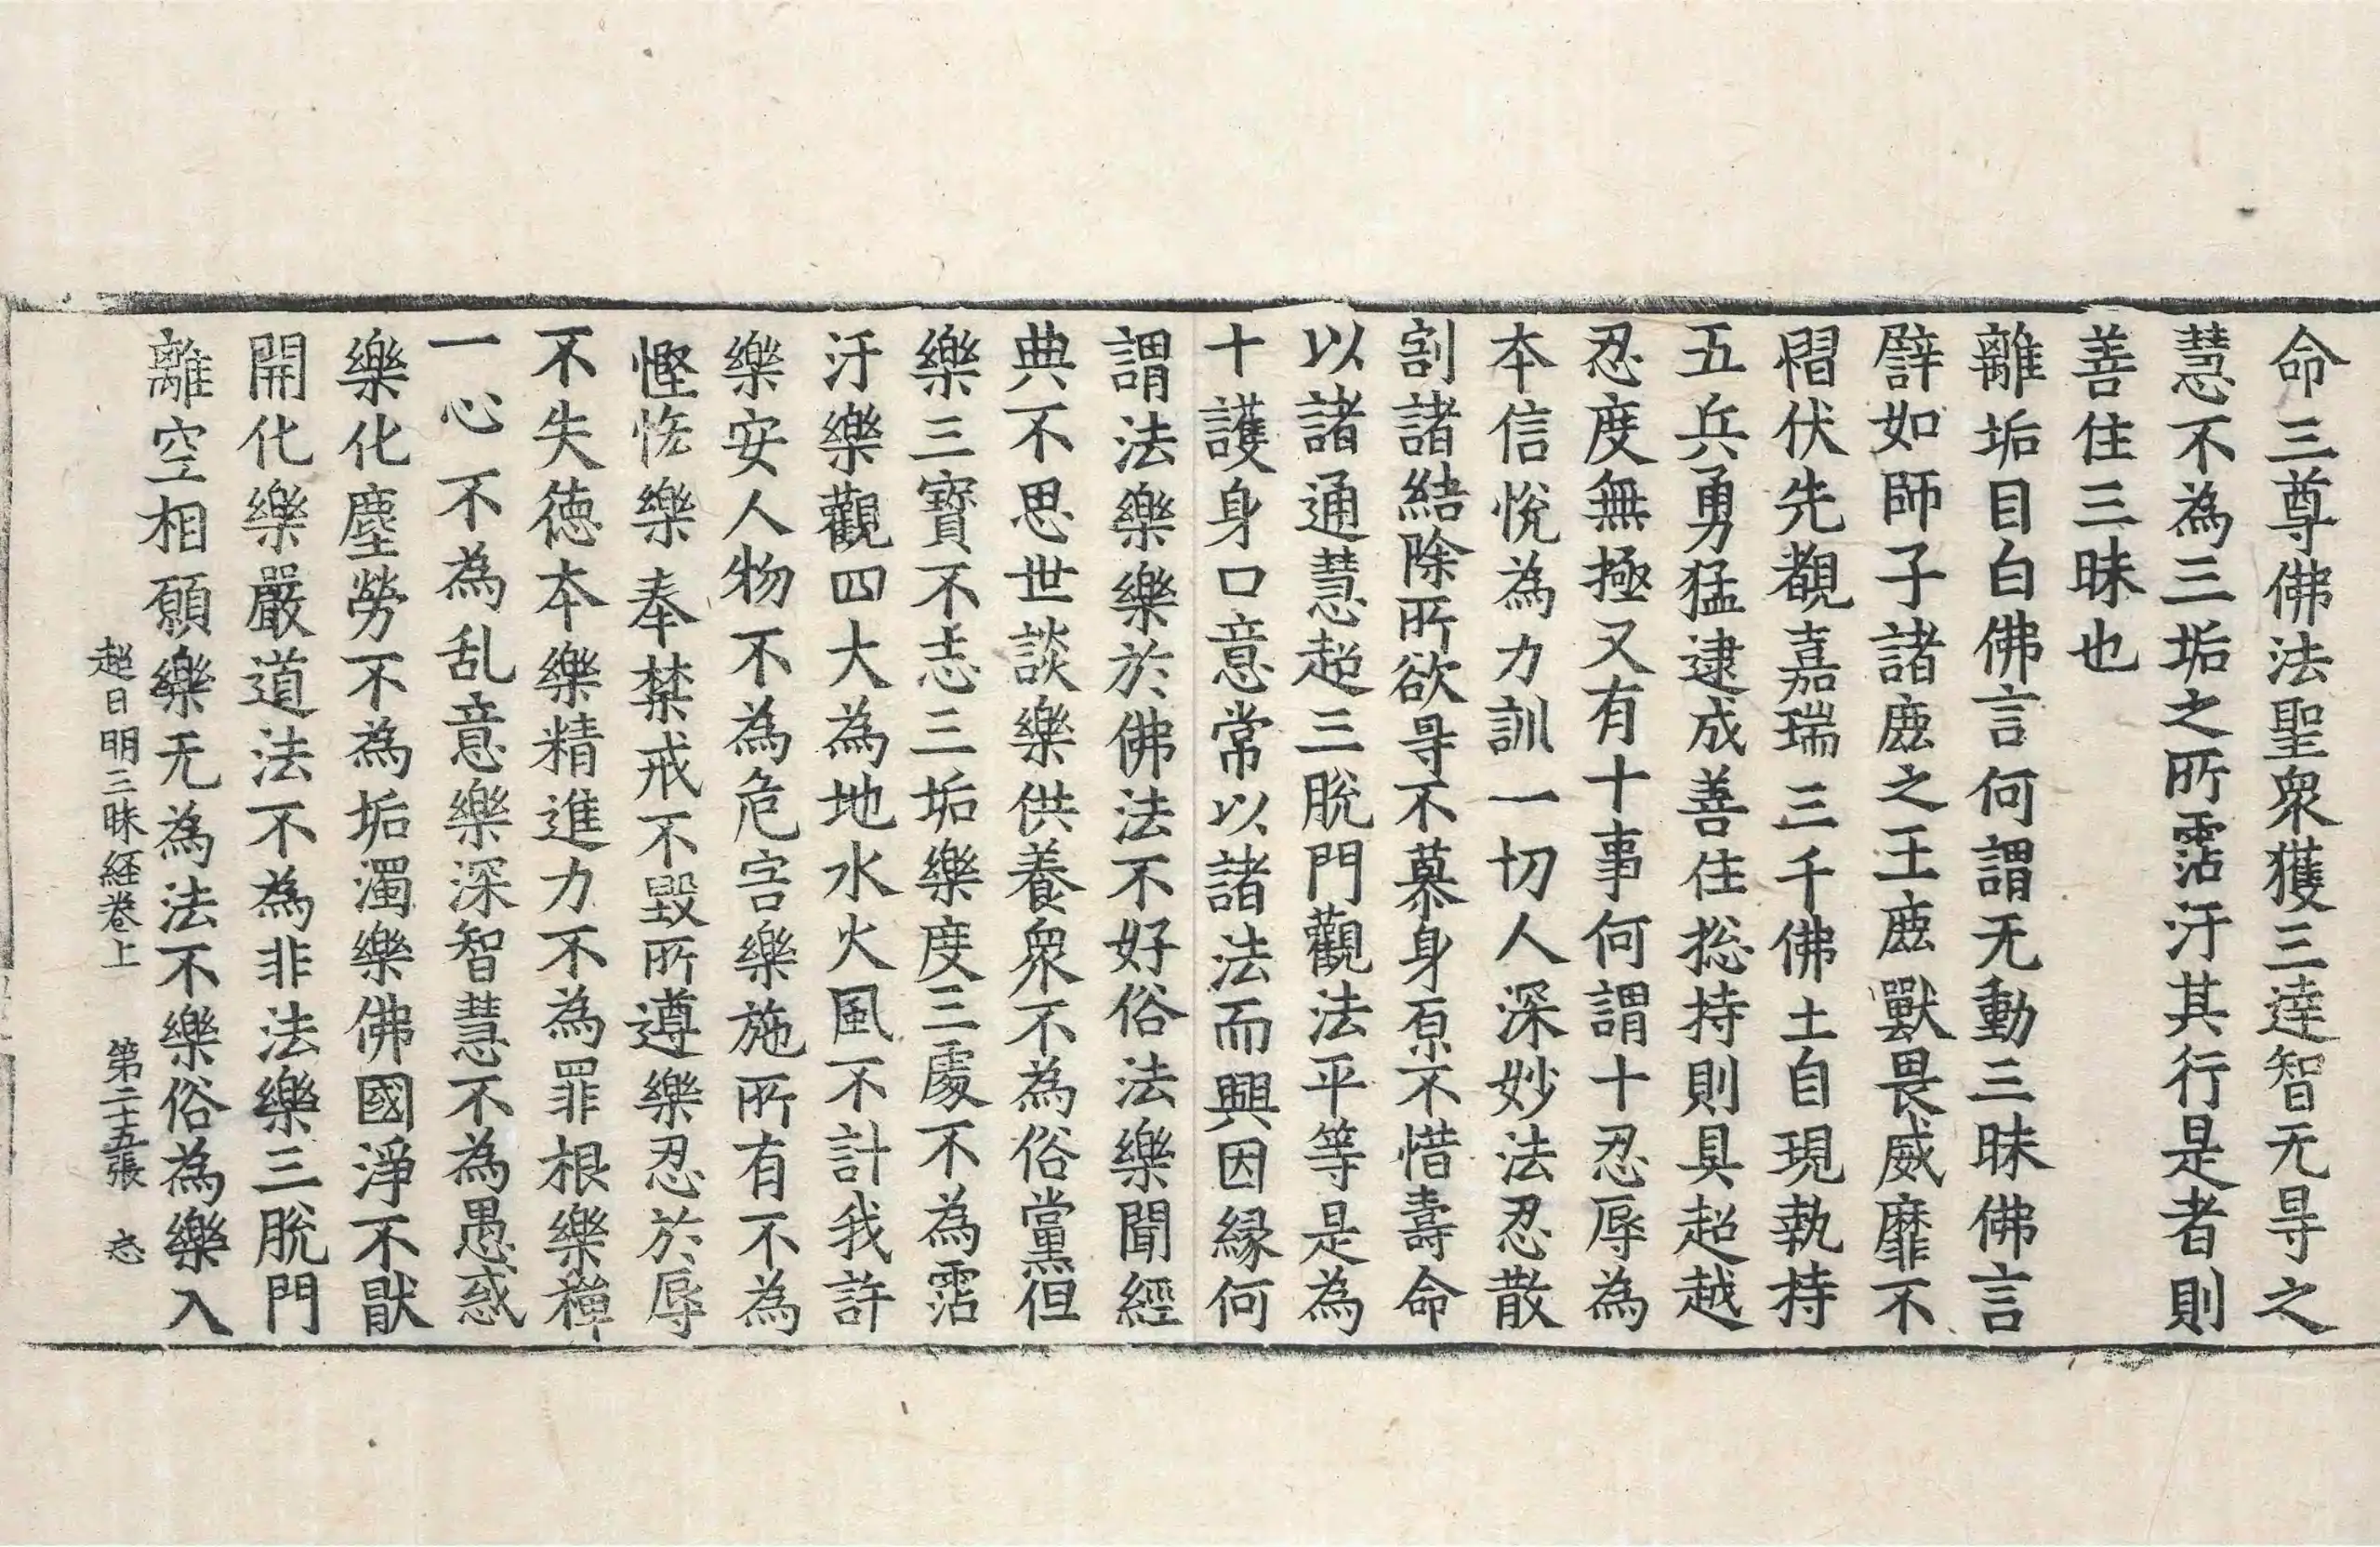 命三尊佛法聖衆獲三達智无㝵之
慧不為三垢之所霑汙其行是者則
善住三昧也
離垢目白佛言何謂无動三昧佛言
譬如師子諸鹿之王鹿獸畏威靡不
慴伏先覩嘉瑞三千佛土自現執持
五兵勇猛逮成善住捴持則具超越
忍度無極又有十事何謂十忍辱為
本信悅為力訓一切人深妙法忍散
割諸結除所欲㝵不慕身原不惜壽命
以諸通慧超三脫門觀法平等是為
十護身口意常以諸法而興因緣何
謂法樂樂於佛法不好俗法樂聞經
典不思世談樂供養衆不為俗黨但
樂三寶不志三垢樂度三處不為霑
汙樂觀四大為地水火風不計我許
樂安人物不為危害樂施所有不為
慳悋樂奉禁戒不毀所遵樂忍於辱
不失徳本樂精進力不為罪根樂禪
一心不為乱意樂深智慧不為愚惑
樂化塵勞不為垢濁樂佛國淨不猒
開化樂嚴道法不為非法樂三脫門
離空相願樂无為法不樂俗為樂入
超日明三昧経卷上　第二十五張　忘